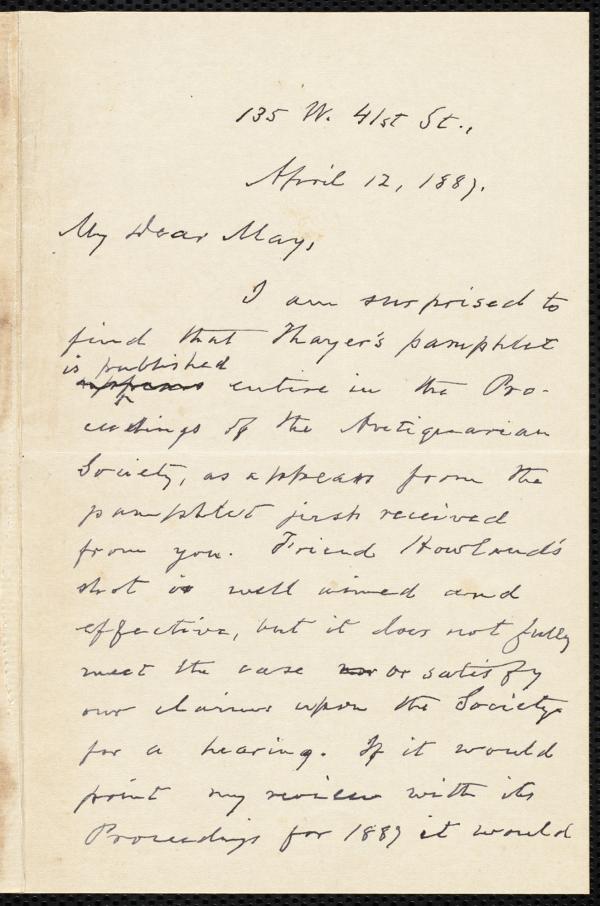 135 W. 41st St.,
April 12, 1887.
My Dear May,
I am surprised to
find that Thayer's pamphlet
is published
appears entire in the Pro-
ceedings of the Antiquarian
Society, as appears from the
pamphlet just received
from you. Friend Howland's
shot is well aimed and
effective, but it does not fully
meet the case nor or satisfy
our claims upon the Society
for a hearing. If it would
print my review with its
Proceedings for 1887 it would